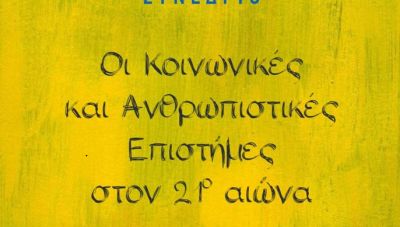 ΣΥΝΕΔΡΙΟ
Οι Κοινωνικές
και Ανθρωπιστικές
Επιστήμες
στον 21º αιώνα